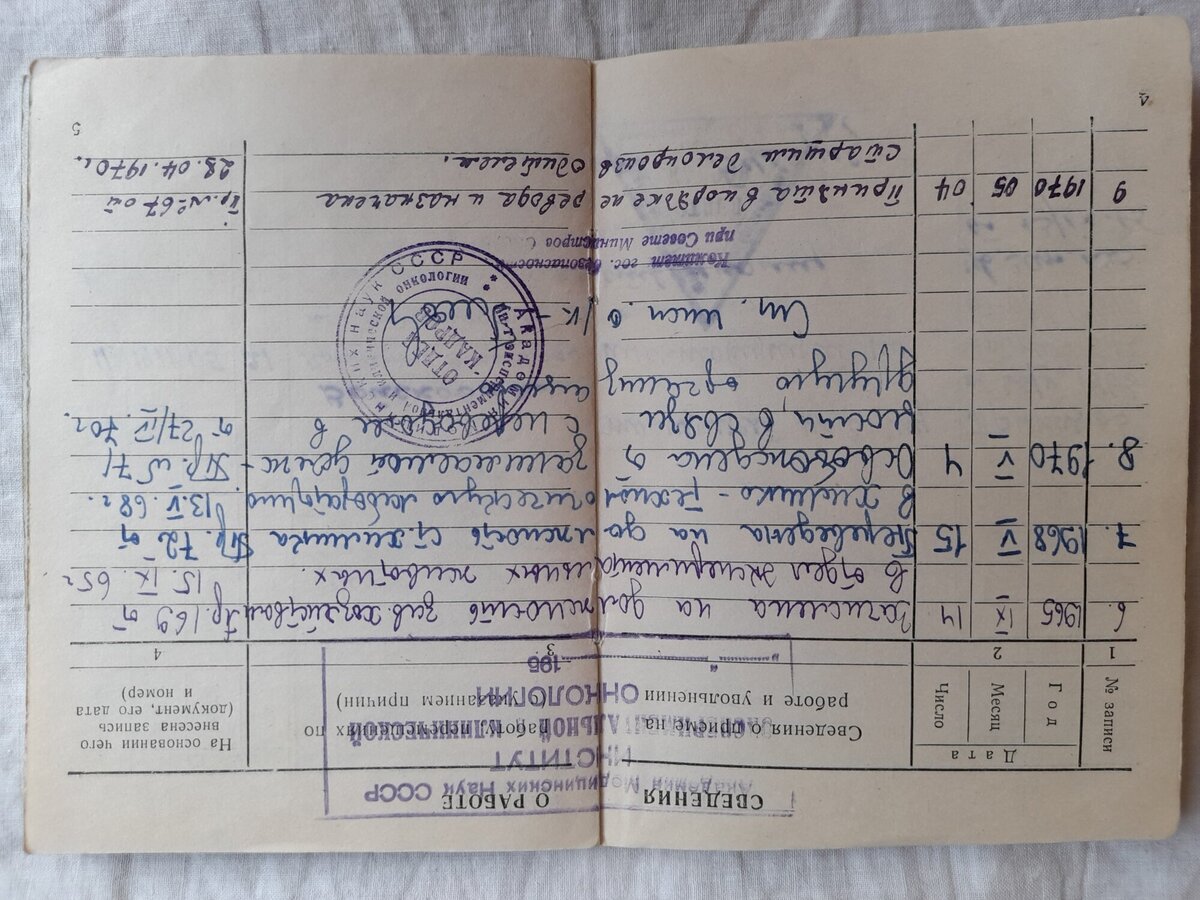 СВЕДЕНИЯ О РАБОТЕ
Академия Медицинских Наук СССР
ИНСТИТУТ
ЭКСПЕРИМЕНТАЛЬНОЙ И КЛИНИЧЕСКОЙ
ОНКОЛОГИИ
" " 195
№ записи
Дата
Год
Месяц
Число
Сведения о приеме на работу, перемещениях по
работе и увольнении (с указанием причин)
На основании чего
внесена запись
(документ, его дата
и номер)
1 2 3 4
6. 1965 IX 14 Зачислена на должность зав. хозяйством Пр. 169 от
в отдел экспериментальных животных. 15. IX. 65 г.
7. 1968 V 15 Переведена на должность ст. химика Пр. 72 от
в химико- 13 V. 68 г.
8. 1970 V 4 Освобождена от занимаемой долж- Пр. № 71
ности, в связи с переводом в от 27/IV. 70 г.
другую организ
Ст. инсп. о/к
Академия медицинских наук СССР
Ин-т экспериментальной и клинической онкологии
ОТДЕЛ
КАДРОВ
Комитет гос. безопасности
при Совете Министров С
9 1970 05 04 Принята в порядке перевода и назначена Пр. № 67 от
старшим делопроизводителем. 28.04.1970 г.
4
5